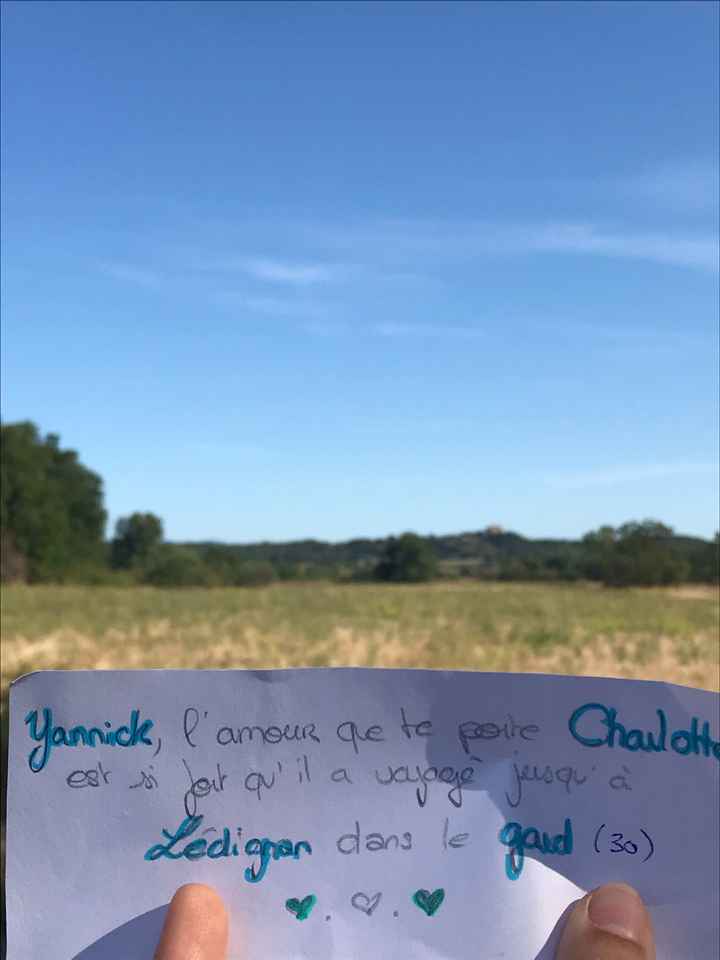 Yannick, l'amour que te porte Charlotte
est si fort qu'il a voyagé jusqu'à
Lédignan dans le gard (30)